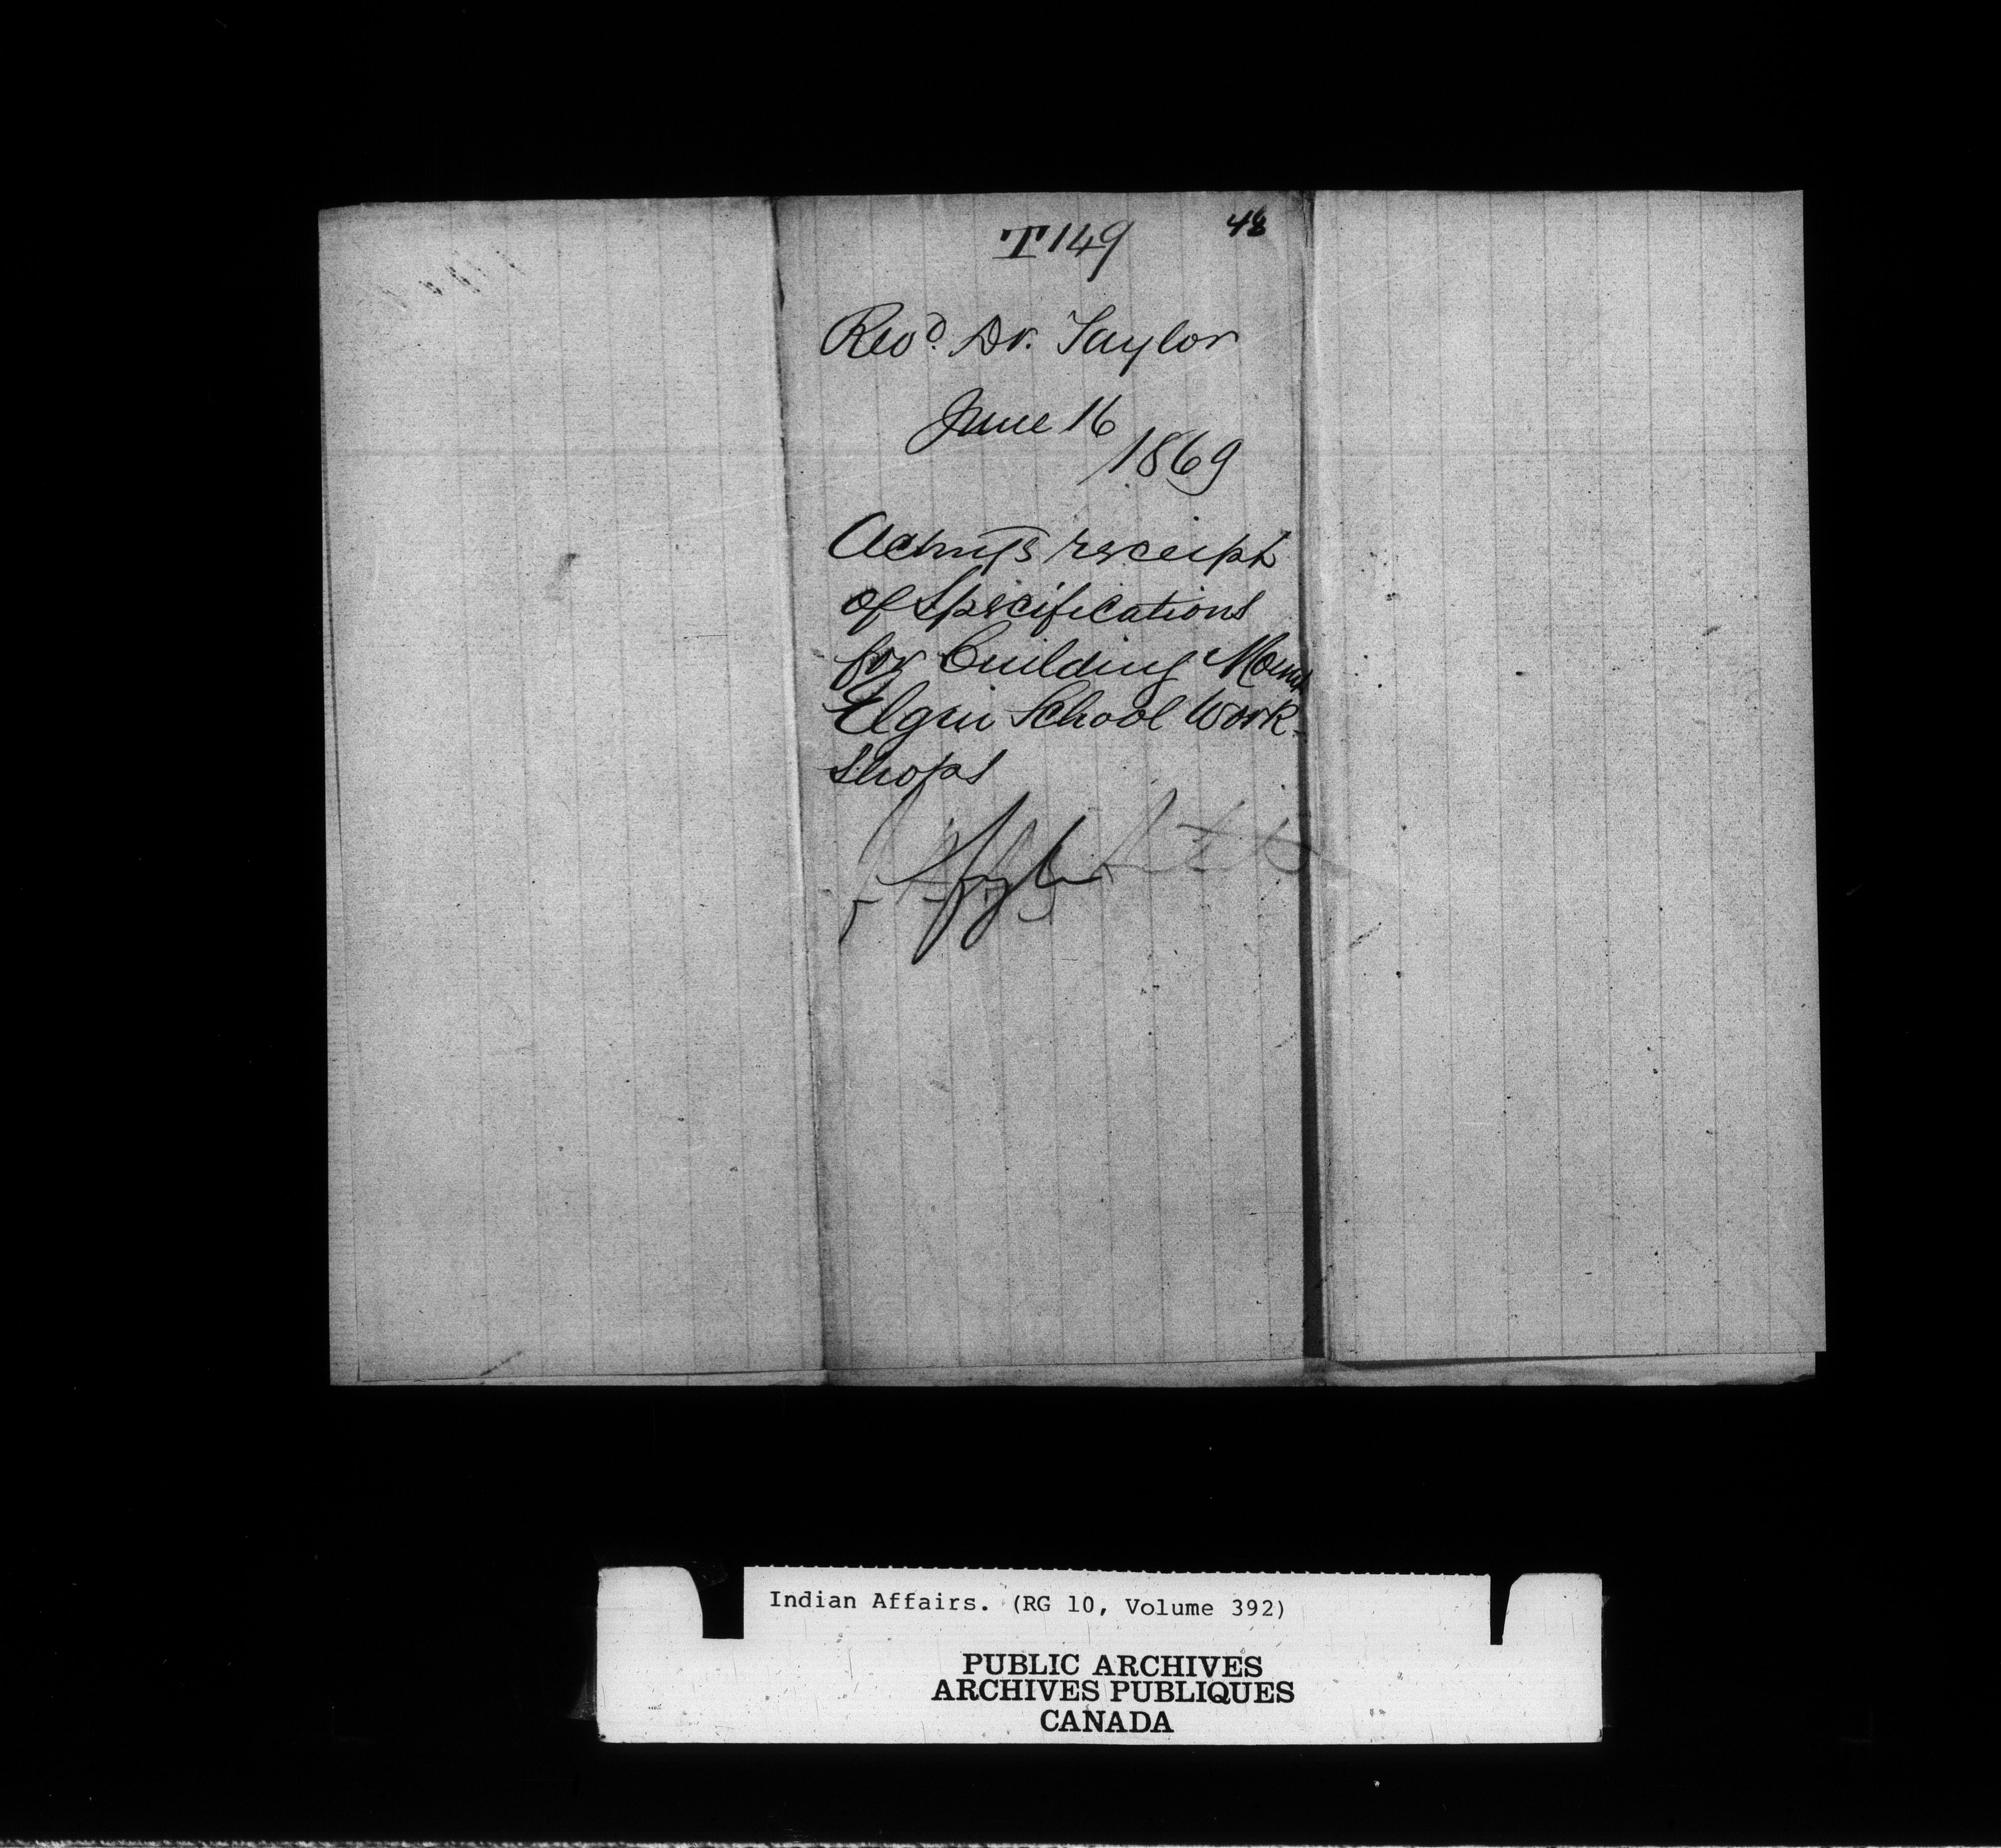 48
T149
Revd. Dr. Taylor
June 16
1869
receipt
of Specifications
for building Mount
Elgin School Work-
shops
Indian Affairs. (RG 10, Volume 392)
PUBLIC ARCHIVES
ARCHIVES PUBLIQUES
CANADA